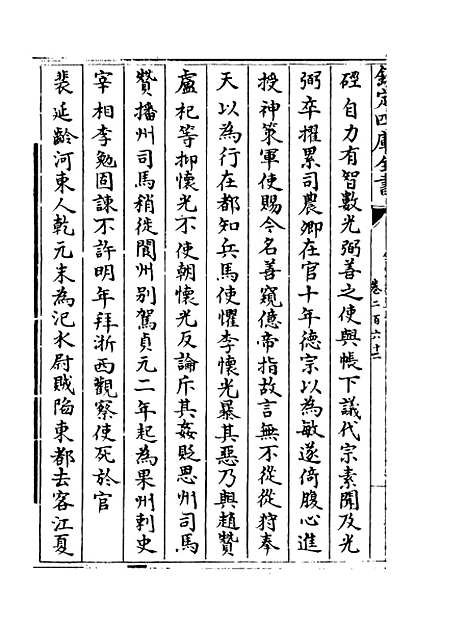 欽定四庫全書
卷二百六十二
硜自力有智數光弼善之使與帳下議代宗素聞及光
弼卒擢累司農卿在官十年德宗以為敏遂倚腹心進
授神策軍使賜今名善窺億帝指故言無不從從狩奉
天以為行在都知兵馬使懼李懷光暴其惡乃與趙贊
盧杞等抑懷光不使朝懷光反論斥其姦貶恩州司馬
贊播州司馬稍徙閬州別駕貞元二年起為果州刺史
宰相李勉固諫不許明年拜浙西觀察使死於官
裴延齡河東人乾元末為汜水尉賊陷東都去客江夏